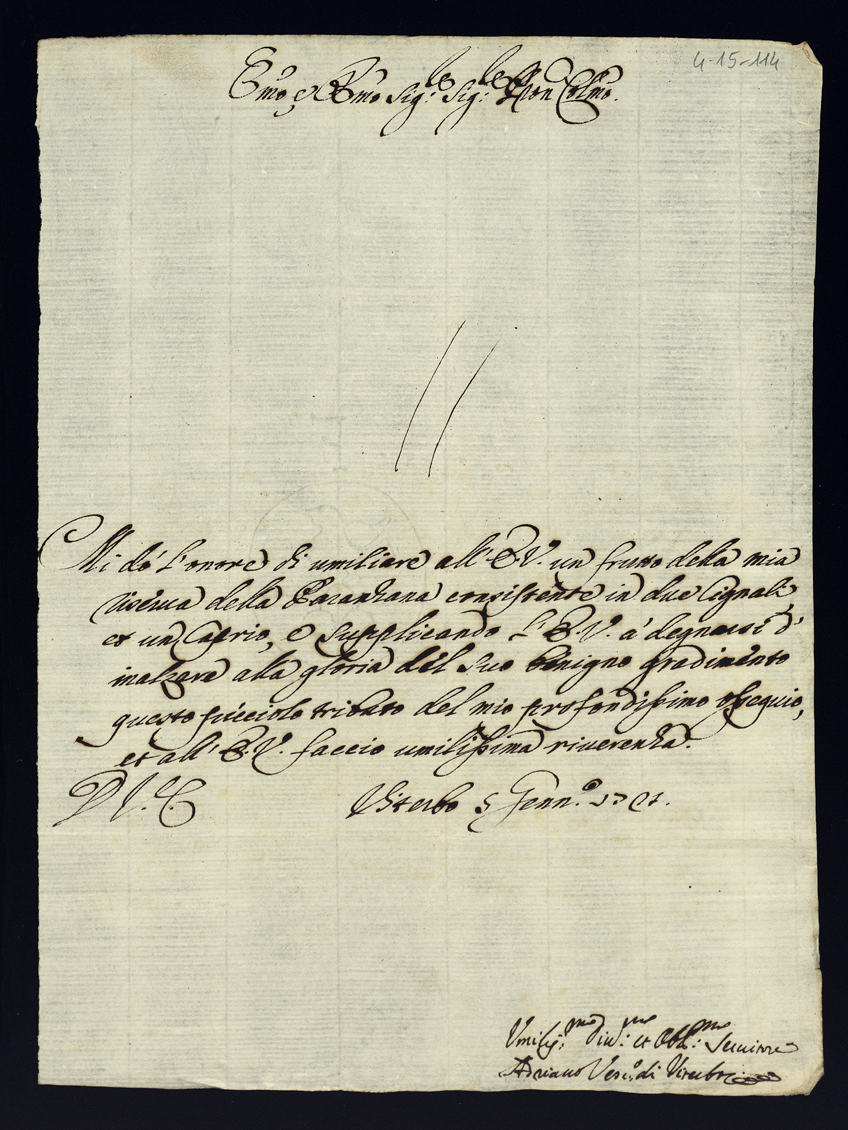 4-15-114
Emo, e Rmo Sig:re Sig:re Pron Colmo.
Mi dò l'onore di umiliare all'E.V. un frutto della mia
riserua della Baranzana consistente in due Cignali,
et un Caprio, e supplicando l'E.V. à degnarsi d'
inalzare alla gloria del suo benigno gradimento
questo picciolo tributo del mio profondissimo ossequio,
et all'E.V. faccio umilissima riverenza.
D.V.E. Viterbo 5 Genn.o
Umiliss:mo diu:mo et Obbl:mo Seruitore
Adriano Vesc.o di Viterbo